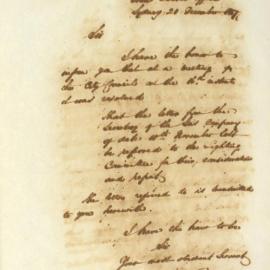 Sydney 20 December 1847
Sir
I have the honor to
inform you that at a meeting of
the City Council on the 16th instant
it was resolved
That the letter from the
Secretary of the Gas Company
of date 10th November last
be referred to the Lighting
Committee for their consideration
and report
The letter referred to is transmitted
to you herewith.
I have the honor to be
Sir
Your most obedient Servant